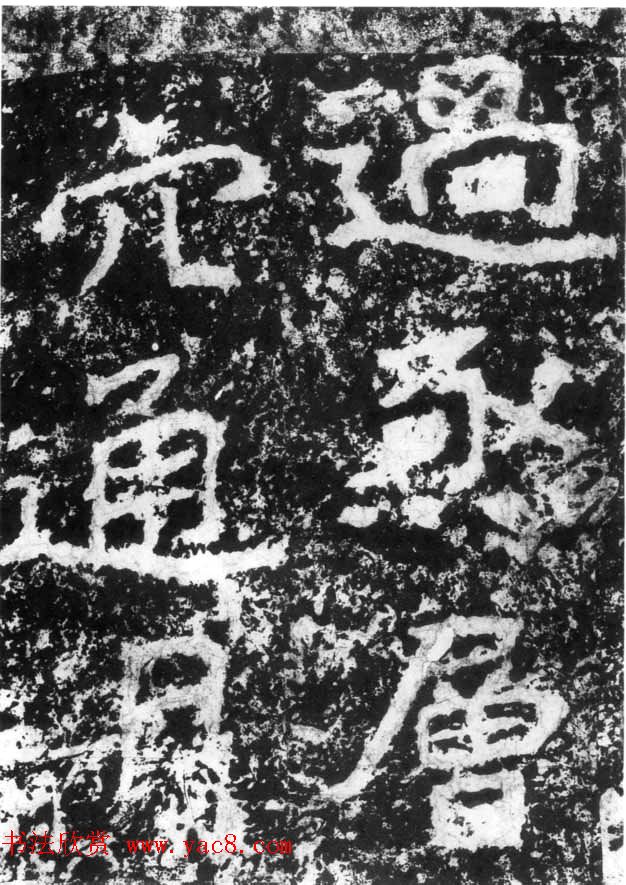 過亟層
穴通月
书法欣赏 www.yac8.com